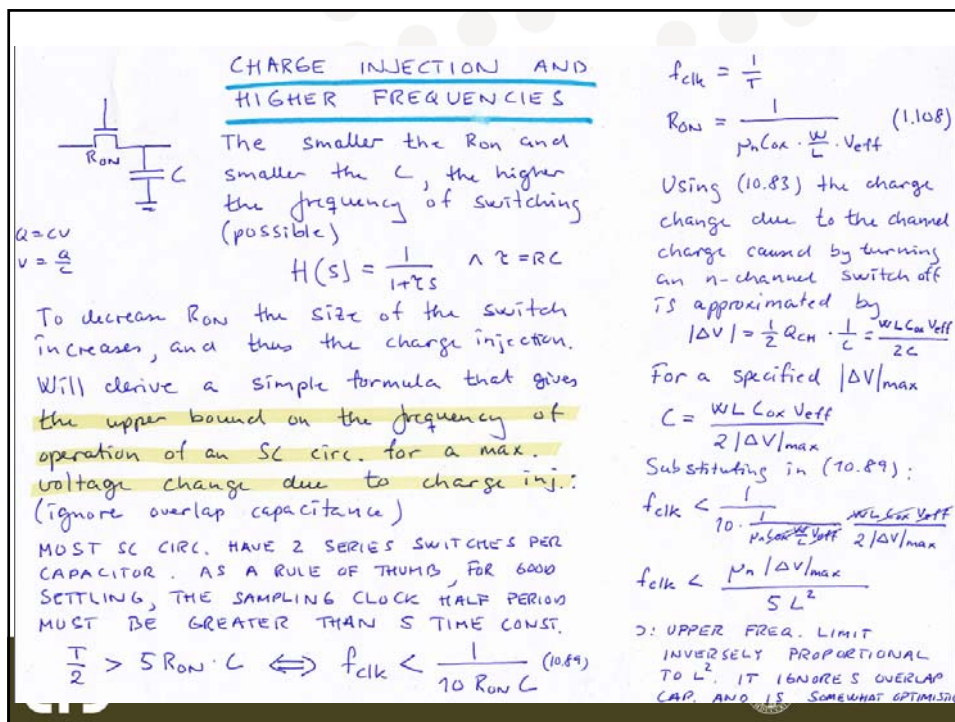 CHARGE INJECTION AND
HIGHER FREQUENCIES
R_ON
C
Q = CV
V = Q/C
The smaller the Ron and
smaller the C, the higher
the frequency of switching
(possible)
H(s) = 1/(1+τs) ∧ τ = RC
To decrease R_ON the size of the switch
increases, and thus the charge injection.
Will derive a simple formula that gives
the upper bound on the frequency of
operation of an SC circ. for a max.
voltage change due to charge inj.:
(ignore overlap capacitance)
MOST SC CIRC. HAVE 2 SERIES SWITCHES PER
CAPACITOR. AS A RULE OF THUMB, FOR GOOD
SETTLING, THE SAMPLING CLOCK HALF PERIOD
MUST BE GREATER THAN 5 TIME CONST.
T/2 > 5 R_ON · C ⟺ f_clk < 1/(10 R_ON C) (10.89)
f_clk = 1/T
R_ON = 1/(μn Cox · W/L · Veff) (1.108)
Using (10.83) the charge
change due to the channel
charge caused by turning
an n-channel switch off
is approximated by
|ΔV| = 1/2 Q_CH · 1/C = W L Cox Veff/2C
For a specified |ΔV|max
C = W L Cox Veff/(2 |ΔV|max)
Substituting in (10.89):
f_clk < 1/(10 · 1/(μn Cox W/L Veff) · W L Cox Veff/(2 |ΔV|max))
f_clk < μn |ΔV|max/(5 L²)
Ɔ: UPPER FREQ. LIMIT
INVERSELY PROPORTIONAL
TO L². IT IGNORES OVERLAP
CAP. AND IS SOMEWHAT OPTIMISTIC